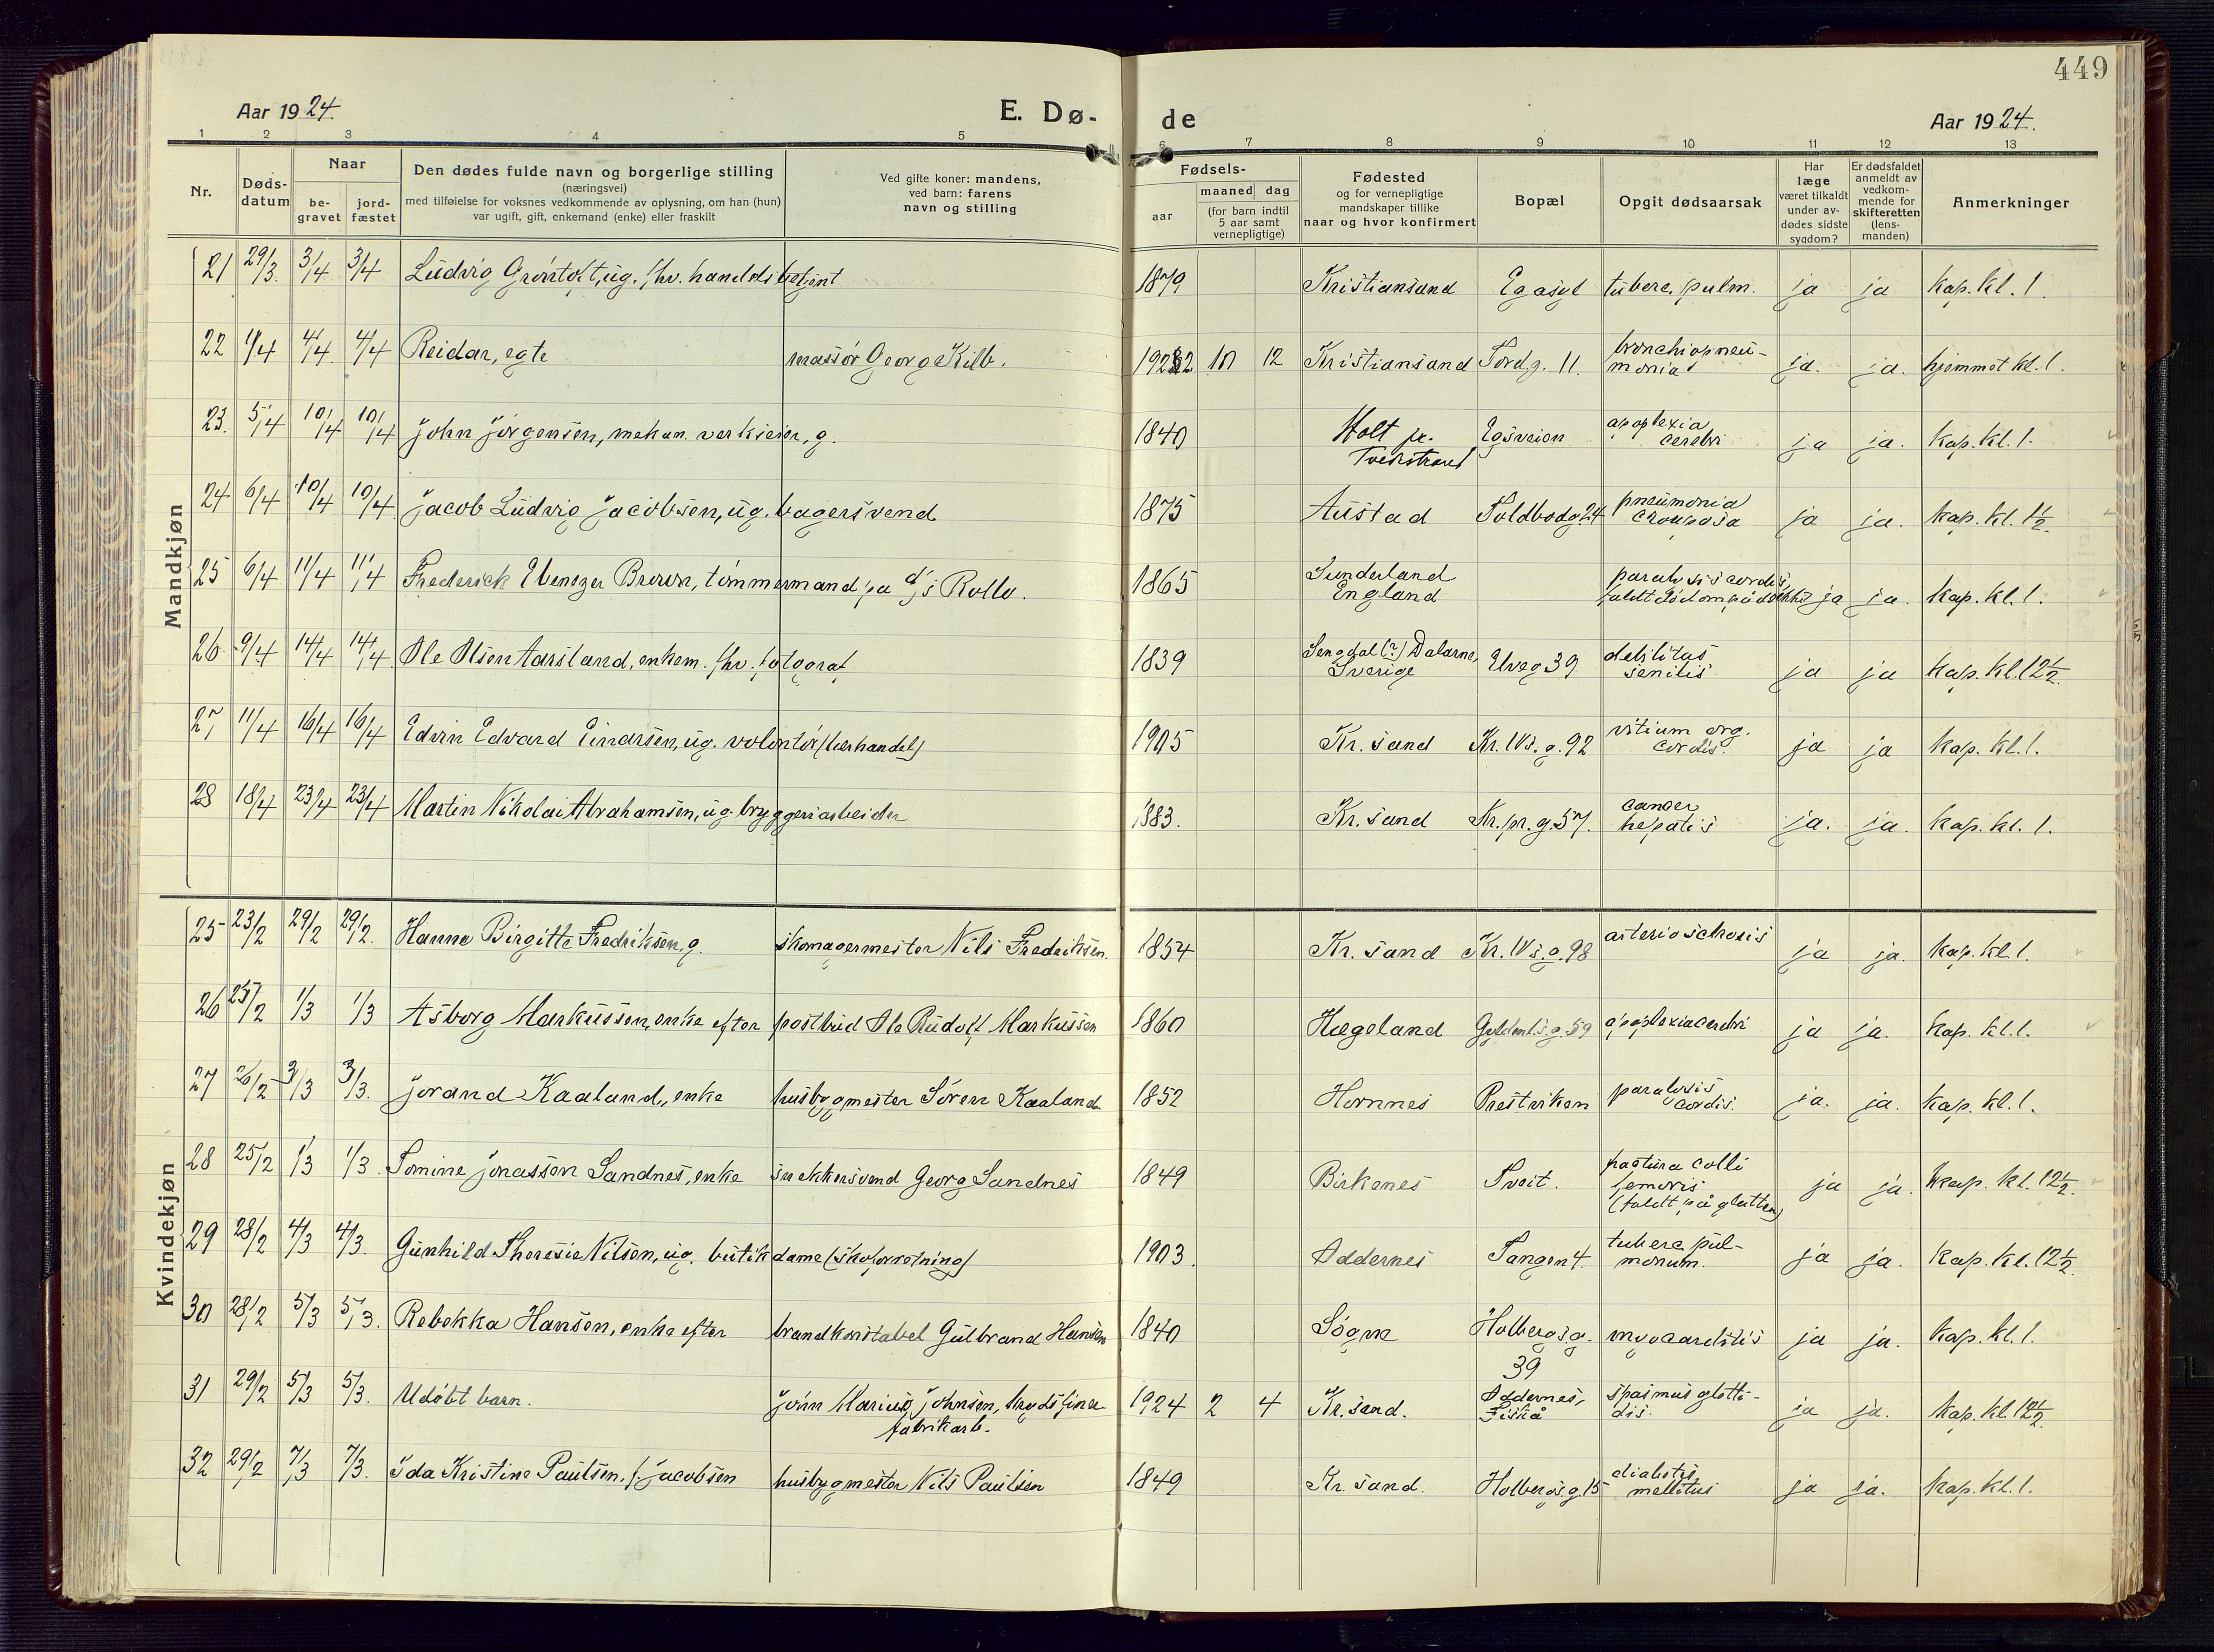 449
Aar 1924.
E. Dø-
de
Aar 1924.
1 2 3 4 5 6 7 8 9 10 11 12 13
Nr.
Døds-
datum
Naar
be-
gravet
jord-
fæstet
Den dødes fulde navn og borgerlige stilling
(næringsvei)
med tilføielse for voksnes vedkommende av oplysning, om han (hun)
var ugift, gift, enkemand (enke) eller fraskilt
Ved gifte koner: mandens,
ved barn: farens
navn og stilling
Fødsels-
aar
maaned dag
(for barn indtil
5 aar samt
vernepligtige)
Fødested
og for vernepligtige
mandskaper tillike
naar og hvor konfirmert
Bopæl
Opgit dødsaarsak
Har
læge
været tilkaldt
under av-
dødes sidste
sygdom?
Er dødsfaldet
anmeldt av
vedkom-
mende for
skifteretten
(lens-
manden)
Anmerkninger
Mandkjøn
21 29/3. 3/4 3/4 Ludvig Grøntoft, ug. fhv. handelsbetjent 1879 Kristiansand Egasyl tuberc. pulm. ja ja kap. kl. 1.
22 1/4 4/4 4/4 Reidar, egte massør George Kilb. 1922 10 12 Kristiansand Tordg. 11. bronchiopneu-
monia ja. ja. hjemmet kl. 1.
23. 5/4 10/4 10/4 John Jørgensen, mekan. verkseier, g. 1840 Holt pr.
Tvedestrand Egsveien apoplexia
cerebri ja ja. kap. kl. 1.
24 6/4 10/4 10/4 Jacob Ludvig Jacobsen, ug. bagersvend 1875 Austad Toldbodg. 24 pneumonia
crouposa ja ja. kap. kl. 1 1/2.
25 6/4 11/4 11/4 Frederick Ebenezer Brown, tømmermand på d/s Rollo. 1865 Sunderland
England paralysis cordis,
faldt død om på dækket ja ja. kap. kl. 1.
26 9/4 14/4 14/4 Ole Olsen Aarsland, enkem. fhv. fotograf 1839 Sengdal (?) Dalarne,
Sverige Elveg 39 debilitas
senilis ja ja kap. kl. 12 1/2.
27 11/4 16/4 16/4 Edvin Edvard Einarsen, ug. volontør (lærhandel) 1905 Kr. sand Kr. IVs. g. 92 vitium org.
cordis. ja ja kap. kl. 1.
28 18/4 23/4 23/4 Martin Nikolai Abrahamsen, ug. bryggeriarbeider 1883. Kr. sand Kr. pr. g. 57. cancer
hepatis ja. ja. kap. kl. 1.
Kvindekjøn
25 23/2 29/2 29/2. Hanna Birgitte Fredriksen, g. skomagermester Nils Fredriksen. 1854 Kr. sand Kr. IVs. g. 98 arteriosclrosis ja ja. kap. kl. 1.
26 25/2 1/3 1/3 Asborg Markussen, enke efter postbud Ole Rudolf Markussen 1860 Hægeland Gyldenl.s. g. 59 apoplexia cerebri ja ja. kap. kl. 1.
27 26/2 3/3 3/3. Jorand Kaaland, enke husbygmester Sören Kaaland 1852 Hornnes Prestviken paralysis
cordis. ja. ja. kap. kl. 1.
28 25/2 1/3 1/3. Tomine Jonassen Sandnes, enke snekkersvend Georg Sandnes 1849 Birkenes Tveit. fractura colli
femoris
(faldt på glatten) ja ja. kap. kl. 12 1/2.
29 28/2 4/3 4/3. Gunhild Theresie Nilsen, ug. butikdame (skoforretning) 1903. Oddernes Tangen 4. tuberc. pul-
monum. ja ja. kap. kl. 12 1/2.
30 28/2 5/3 5/3. Rebekka Hansen, enke efter brandkonstabel Gulbrand Hansen 1840 Søgne Holbergs g.
39 myocarditis ja ja. kap. kl. 1.
31 29/2 5/3 5/3. Udøbt barn. Jørn Marius Johnsen,
fabrikarb. 1924 2 4 Kr. sand. Oddernes,
Fiskå spasmus glotti-
dis. ja ja. kap. kl. 12 1/2.
32 29/2 7/3 7/3. Ida Kristine Paulsen, f. Jacobsen husbygmester Nils Paulsen 1849 Kr. sand. Holbergs g. 15 diabetes
mellitus ja ja. kap. kl. 1.